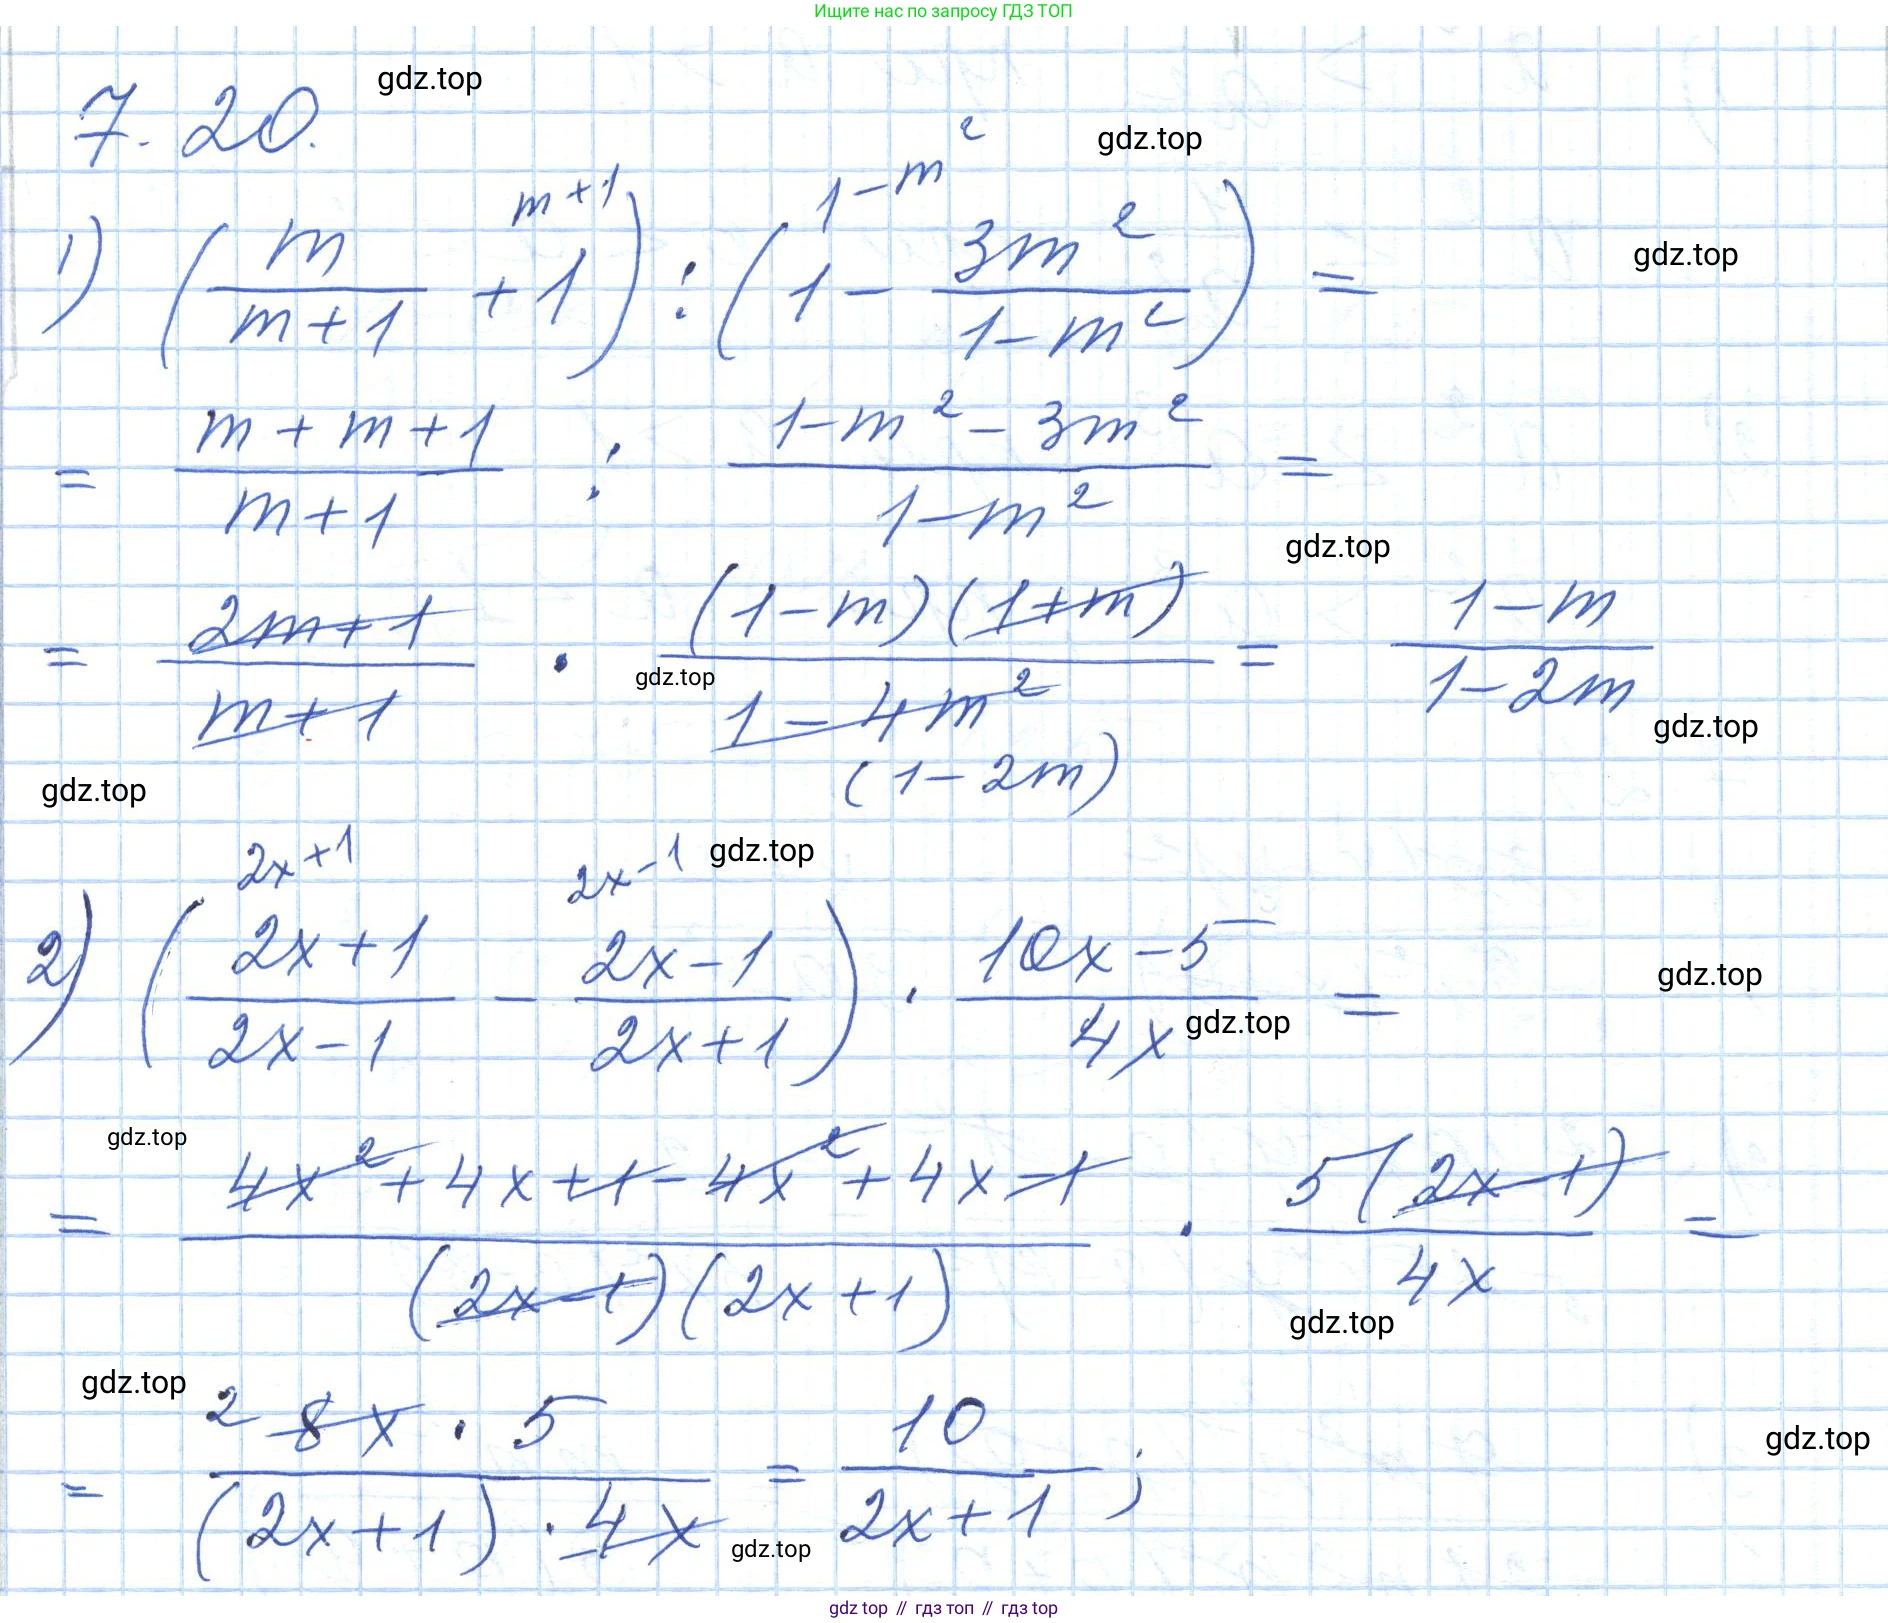 Ищите нас по запросу ГДЗ ТОП
7.20. gdz.top
gdz.top
1) (m/(m+1) + 1^(m+1)) : (1^(1-m²) - 3m²/(1-m²)) = gdz.top
= (m+m+1)/(m+1) : (1-m²-3m²)/(1-m²) =
gdz.top
= (2m+1)/(m+1) · ((1-m)(1+m))/(1-4m²) = (1-m)/(1-2m)
gdz.top
gdz.top
(1-2m)
gdz.top
2x+1 2x-1 gdz.top
2) ((2x+1)/(2x-1) - (2x-1)/(2x+1)) · (10x-5)/(4x) = gdz.top
gdz.top
gdz.top
= (4x²+4x+1-4x²+4x-1)/((2x-1)(2x+1)) · (5(2x-1))/(4x) =
gdz.top
gdz.top
= (²8x·5)/((2x+1)·4x) = 10/(2x+1);
gdz.top
gdz.top
gdz top // гдз топ // гдз top